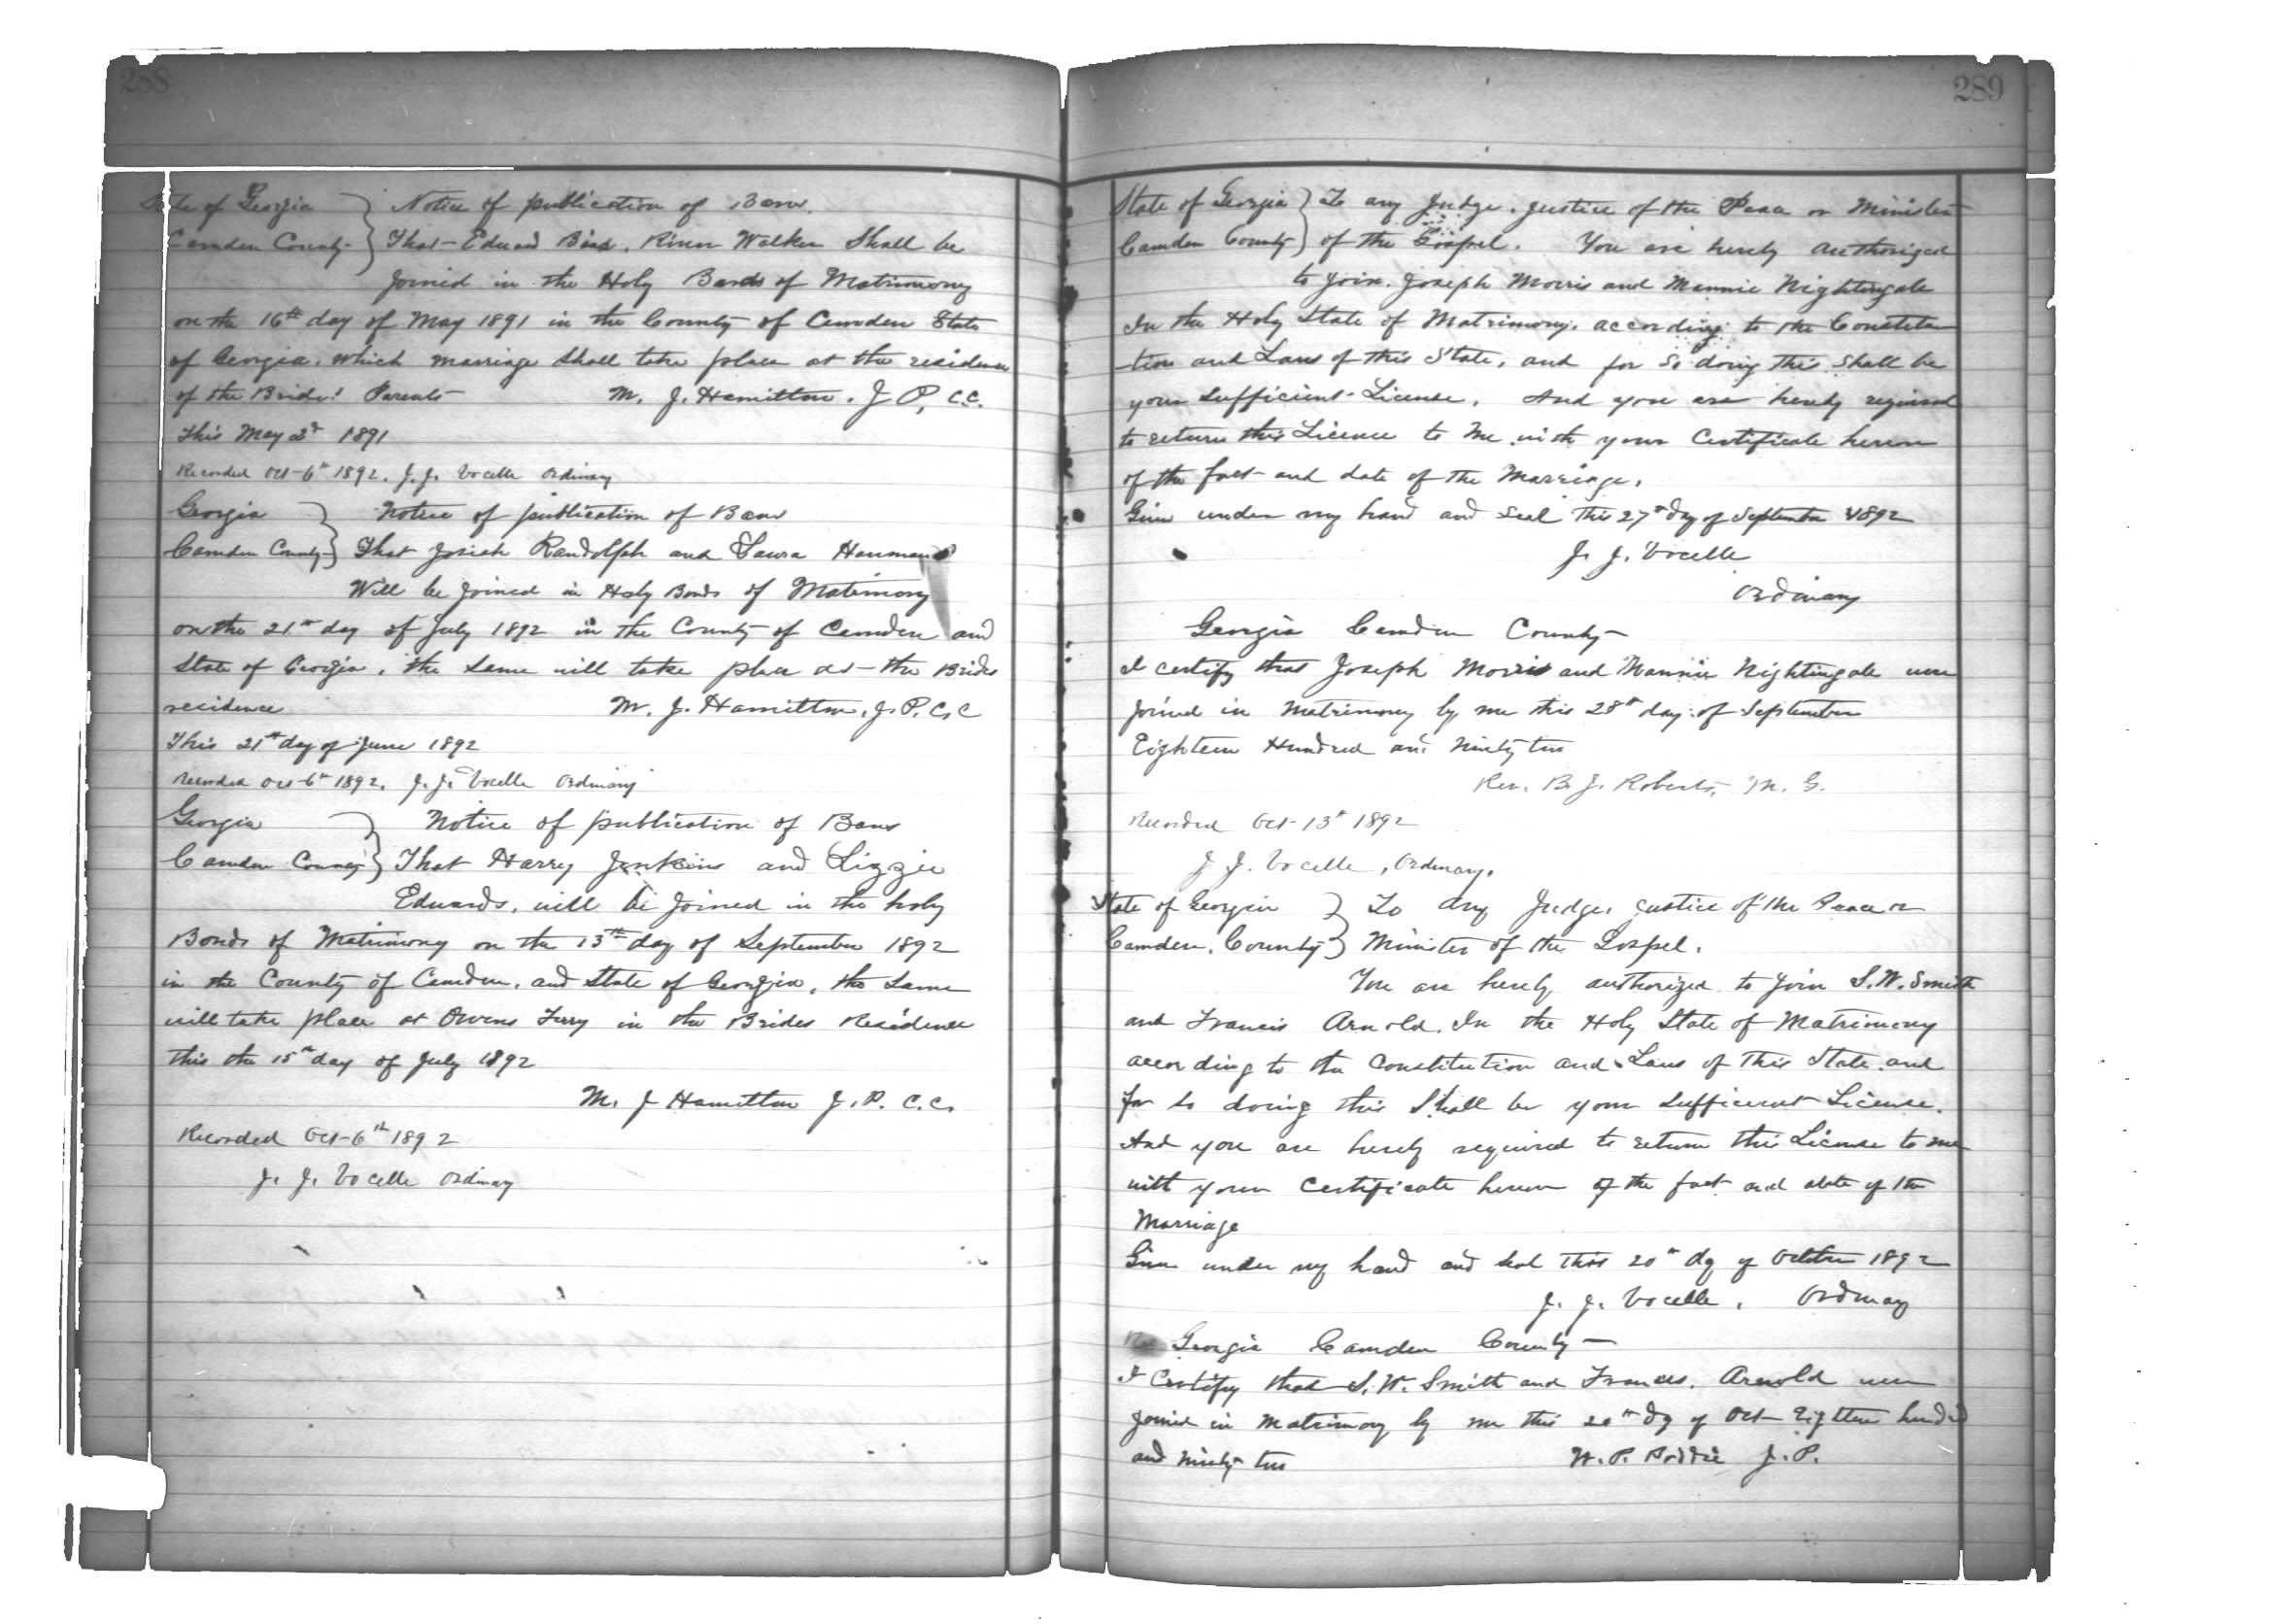 288
State of Georgia } Notice of publication of Bans.
Camden County } That Edward Bird. River Walker Shall be
Joined in the Holy Bands of Matrimony
on the 16th day of May 1891 in the County of Camden State
of Georgia. which marriage shall take place at the residence
of the Brides' Parents M. J. Hamilton. J P, C.C.
This May 2d 1891
Recorded Oct 6th 1892. J. J. Vocelle Ordinary
Georgia } Notice of publication of Bans
Camden County } That Josiah Randolph and Laura
Will be Joined in Holy Bonds of Matrimony
on the 21st day of July 1892 in the County of Camden and
State of Georgia. the same will take place at the Brides
residence M. J. Hamilton, J. P. C. C
This 21st day of June 1892
Recorded Oct 6th 1892. J. J. Vocelle Ordinary
Georgia } Notice of publication of Bans
Camden County } That Harry Jenkins and Lizzie
Edwards, will be Joined in the holy
Bonds of Matrimony on the 13th day of September 1892
in the County of Camden, and State of Georgia, the Same
will take place at Owens Ferry in the Brides Residence
this the 15th day of July 1892
M. J Hamilton J. P. C. C.
Recorded Oct 6th 1892
J. J. Vocelle Ordinary
289
State of Georgia } To any Judge, Justice of the Peace or Minister
Camden County } of the Gospel. You are hereby authorized
to Join. Joseph Morris and Mannie Nightingale
In the Holy State of Matrimony. according to the Constitu
-tion and Laws of this State, and for so doing this shall be
your sufficient License. And you are hereby required
to return this License to me with your Certificate hereon
of the fact and date of the Marriage.
Given under my hand and seal this 27th day of September 1892
J. J. Vocelle
Ordinary
Georgia Camden County
I certify that Joseph Morris and Mannie Nightingale were
Joined in Matrimony by me this 28th day of September
Eighteen Hundred and Ninety two
Rev. B. J. Roberts, M. G.
Recorded Oct 13th 1892
J J. Vocelle, Ordinary.
State of Georgia } To any Judge, Justice of the Peace or
Camden. County } Minister of the Gospel.
You are hereby authorized to Join S. W. Smith
and Francis Arnold. In the Holy State of Matrimony
according to the Constitution and Laws of this State and
for so doing this Shall be your sufficient License.
And you are hereby required to return this License to me
with your Certificate hereon of the fact and date of the
Marriage
Given under my hand and seal this 20th day of October 1892
J. J. Vocelle. Ordinary
Georgia Camden County
I Certify that S. W. Smith and Frances. Arnold were
Joined in Matrimony by me this 20th dy of Oct Eighteen hundred
and Ninety two W. P. J. P.